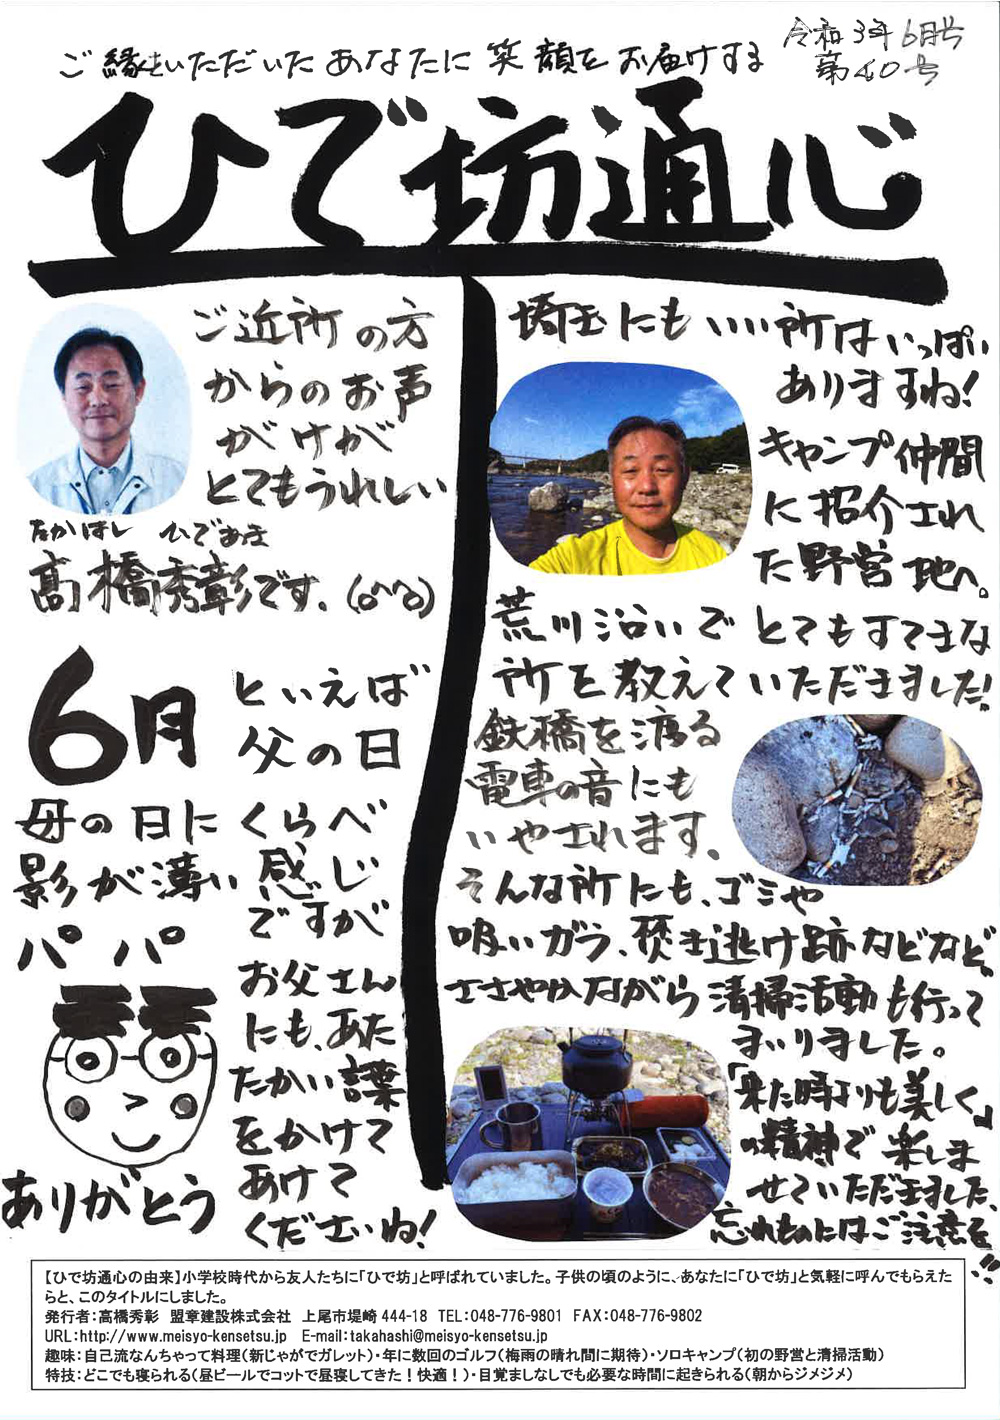 令和3年6月号
第40号
ご縁をいただいたあなたに笑顔をお届けする
ひで坊通心
ご近所の方
からのお声
がけが
とてもうれしい
たかはし ひであき
高橋秀彰です。(o^^o)
6月
といえば
父の日
母の日にくらべ
影が薄い感じ
ですが
パパ
お父さん
にも、あた
たかい言葉
をかけて
あけて
くださいね!
ありがとう
埼玉にもいい所はいっぱい
ありますね!
キャンプ仲間
に招介され
た野営地へ。
荒川沿いでとてもすてきな
所を教えていただきました!
鉄橋を渡る
電車の音にも
いやされます。
そんな所にも、ゴミや
吸いガラ、焚き逃け跡などなど、
ささやかながら清掃活動も行って
まいりました。
「来た時よりも美しく」
の精神で楽しま
せていただきました、
忘れものにはご注意を!!
【ひで坊通心の由来】小学校時代から友人たちに「ひで坊」と呼ばれていました。子供の頃のように、あなたに「ひで坊」と気軽に呼んでもらえた
らと、このタイトルにしました。
発行者:高橋秀彰 盟章建設株式会社 上尾市堤崎 444-18 TEL:048-776-9801 FAX:048-776-9802
URL:http://www.meisyo-kensetsu.jp E-mail:takahashi@meisyo-kensetsu.jp
趣味:自己流なんちゃって料理(新じゃがでガレット)・年に数回のゴルフ(梅雨の晴れ間に期待)・ソロキャンプ(初の野営と清掃活動)
特技:どこでも寝られる(昼ビールでコットで昼寝してきた!快適!)・目覚ましなしでも必要な時間に起きられる(朝からジメジメ)